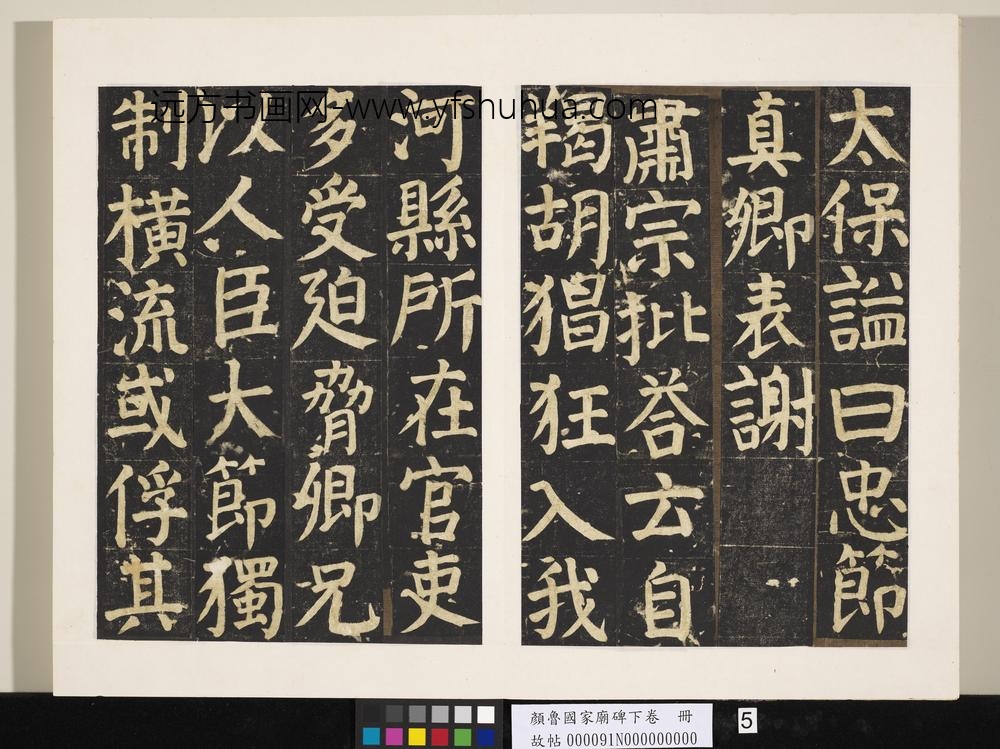 太保謚曰忠節
真卿表謝
肅宗批荅云自
羯胡猖狂入我
河縣所在官吏
多受迫脅卿兄
以人臣大節獨
制橫流或俘其
远方书画网-www.yfshuhua.com
顏魯國家廟碑下卷 冊
故帖 000091N000000000
5